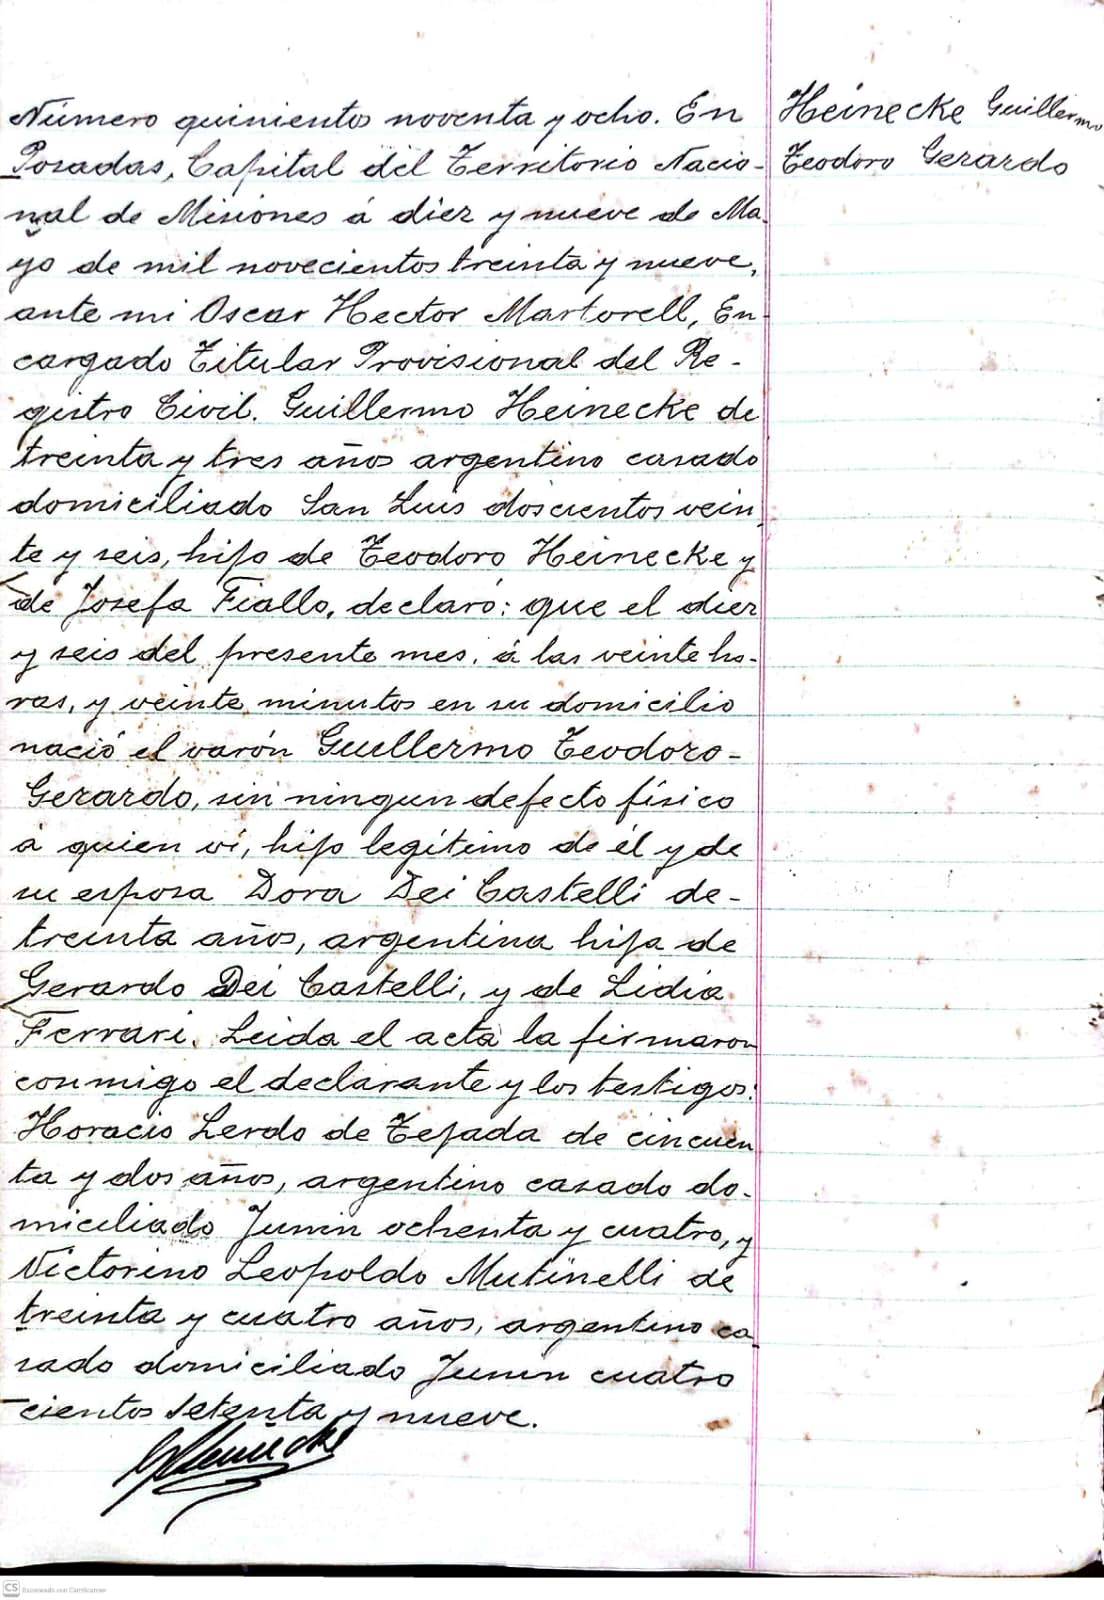 Heinecke Guillermo
Teodoro Gerardo
Número quinientos noventa y ocho. En
Posadas, Capital del Territorio Nacio-
nal de Misiones á diez y nueve de Ma-
yo de mil novecientos treinta y nueve,
ante mi Oscar Hector Martorell, En-
cargado Titular Provisional del Re-
gistro Civil. Guillermo Heinecke de
treinta y tres años argentino casado
domiciliado San Luis doscientos vein-
te y seis, hijo de Teodoro Heinecke y
de Josefa Fiallo, declaró: que el diez
y seis del presente mes, á las veinte ho-
ras, y veinte minutos en su domicilio
nació el varón Guillermo Teodoro-
Gerardo, sin ningun defecto físico
á quien ví, hijo legítimo de él y de
su esposa Dora Dei Castelli de-
treinta años, argentina hija de
Gerardo Dei Castelli, y de Lidia
Ferrari. Leida el acta la firmaron
conmigo el declarante y los testigos:
Horacio Lerdo de Tejada de cincuen
ta y dos años, argentino casado do-
miciliado Junin ochenta y cuatro, y
Victorino Leopoldo Mutinelli de
treinta y cuatro años, argentino ca
sado domiciliado Junin cuatro
cientos setenta y nueve.
GHeinecke
CS Escaneado con CamScanner